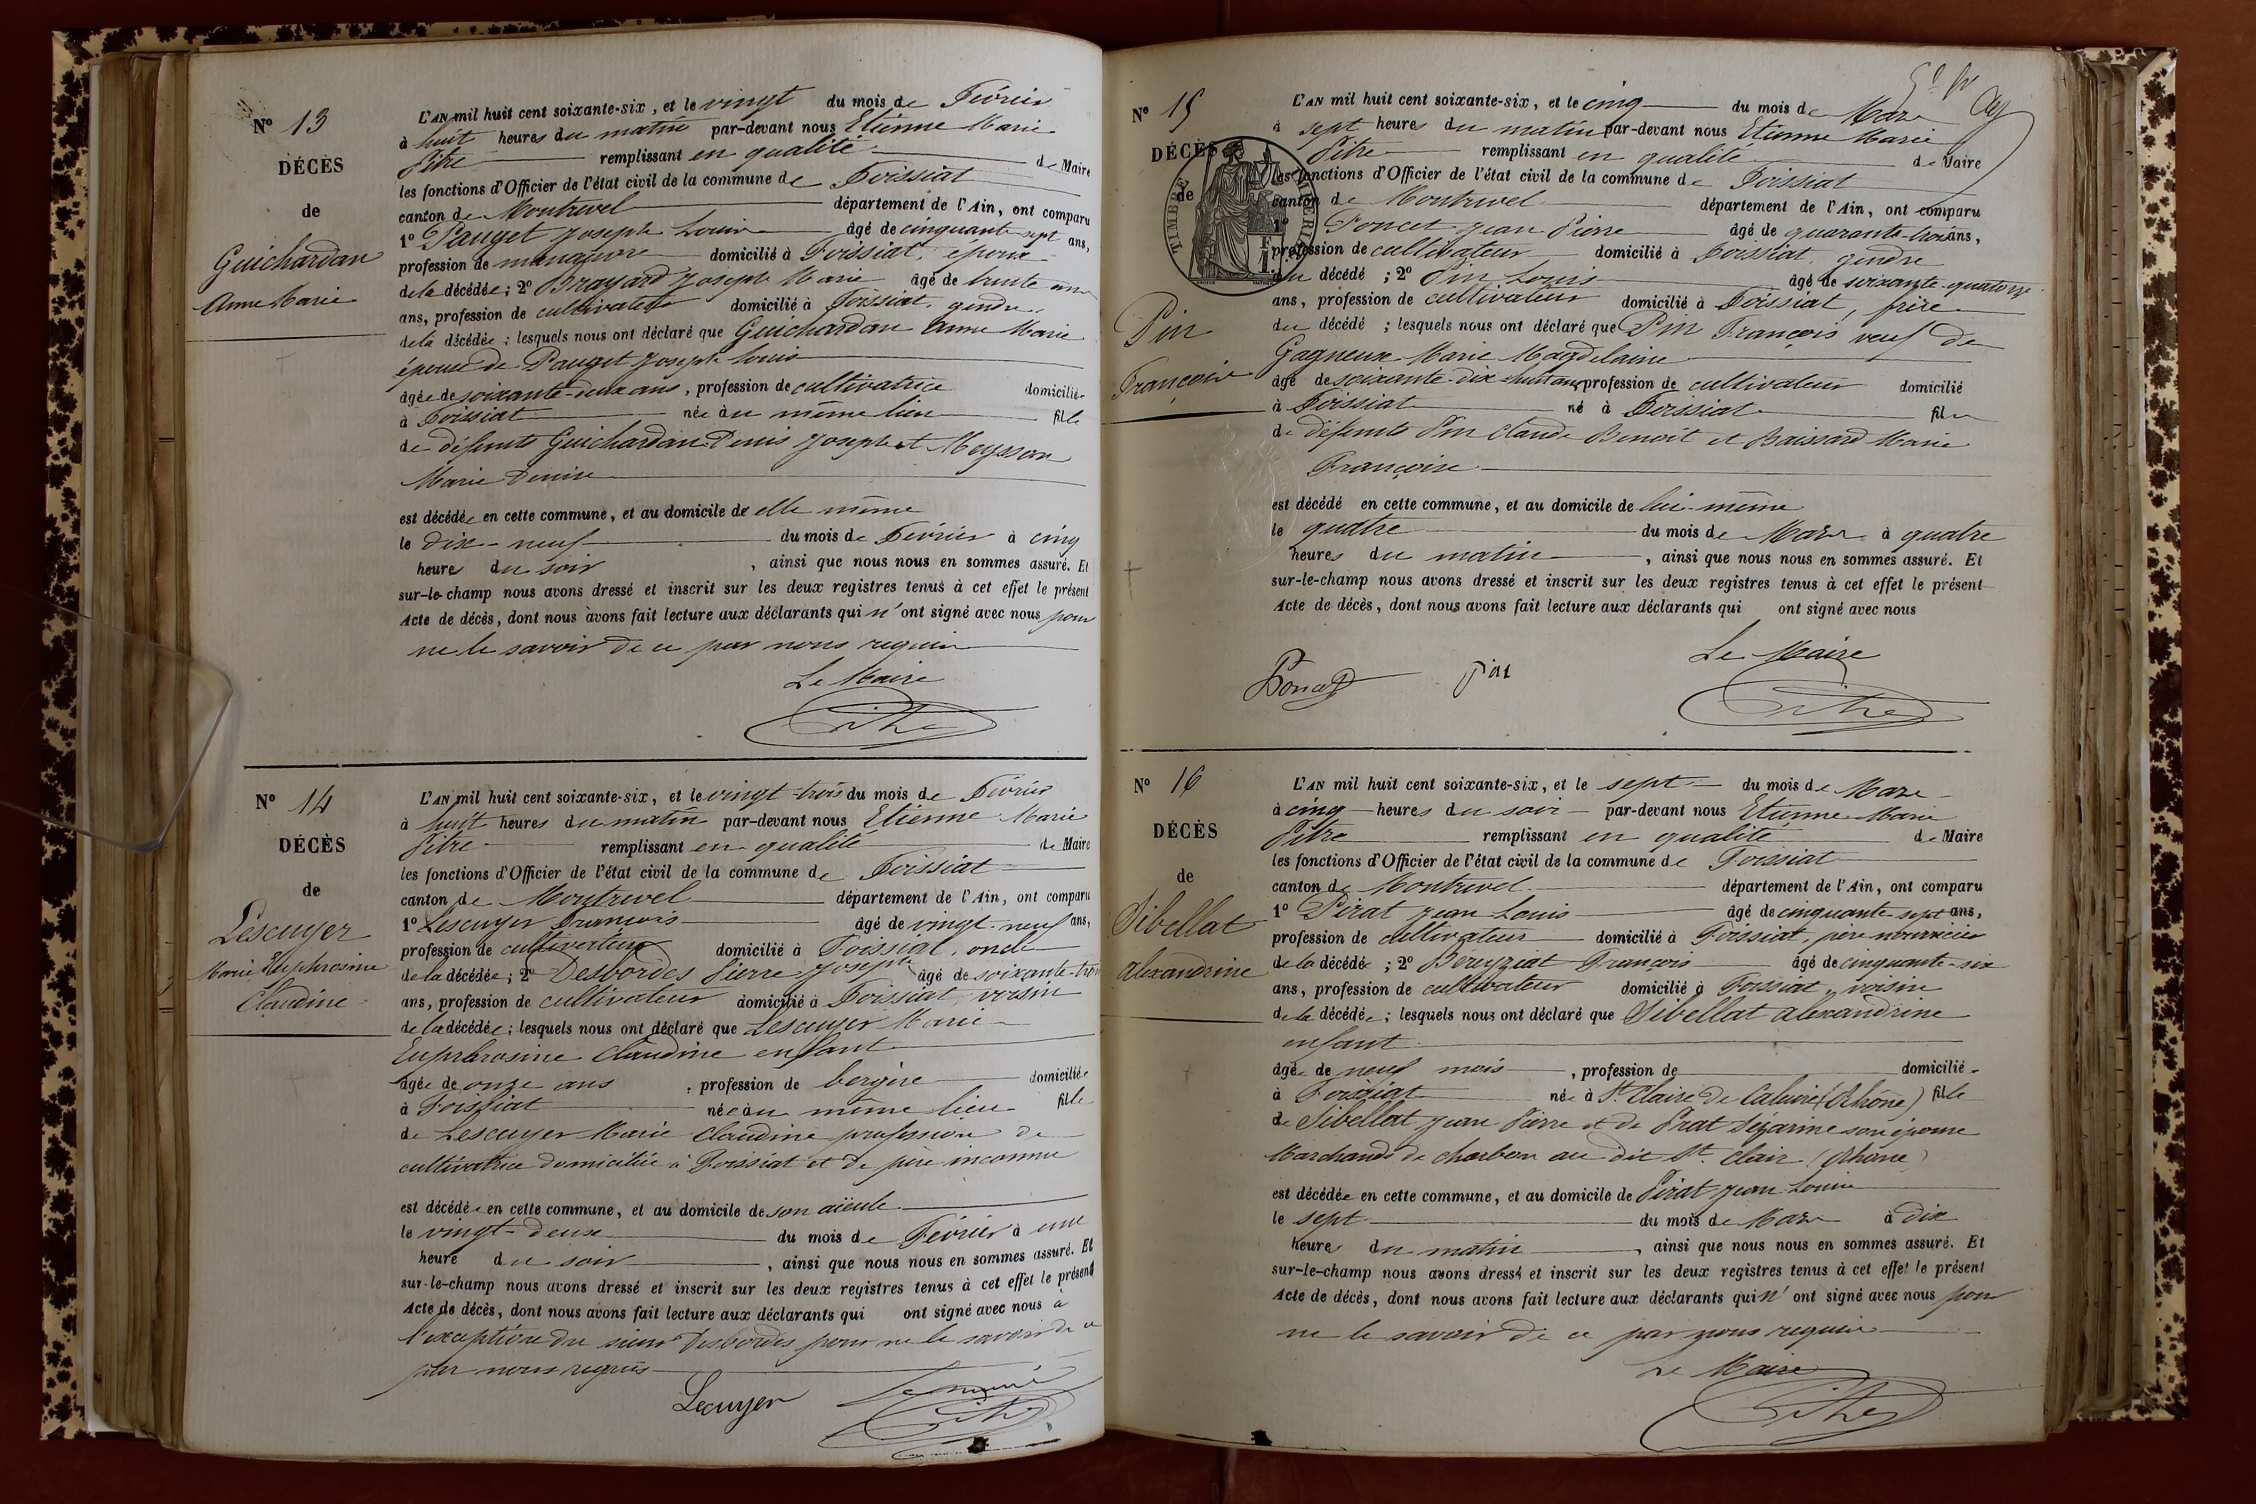 Nº 13
DÉCÈS
de
Guichardan
Anne Marie
L'AN mil huit cent soixante-six, et le vingt du mois de Février
à huit heures du matin par-devant nous Etienne Marie
Pitre remplissant en qualité de Maire
les fonctions d'Officier de l'état civil de la commune de Foissiat
canton de Montrevel département de l'Ain, ont comparu
1º Pauget Joseph Louis âgé de cinquante-sept ans,
profession de manœuvre domicilié à Foissiat, époux
de la décédée; 2º Brayard Joseph Marie âgé de trente
ans, profession de cultivateur domicilié à Foissiat, gendre
de la décédée; lesquels nous ont déclaré que Guichardan Anne Marie
épouse de Pauget Joseph Louis
âgée de soixante-deux ans, profession de cultivatrice domiciliée
à Foissiat née au même lieu fille
de défunts Guichardan Denis Joseph et Meysson
Marie Denise
est décédée en cette commune, et au domicile de elle même
le dix-neuf du mois de Février à cinq
heures du soir, ainsi que nous nous en sommes assuré. Et
sur-le-champ nous avons dressé et inscrit sur les deux registres tenus à cet effet le présent
Acte de décès, dont nous avons fait lecture aux déclarants qui n'ont signé avec nous pour
ne le savoir de ce par nous requis
Le Maire
Pitre
Nº 14
DÉCÈS
de
Lescuyer
Marie Euphrosine
Claudine
L'AN mil huit cent soixante-six, et le vingt-trois du mois de Février
à huit heures du matin par-devant nous Etienne Marie
Pitre remplissant en qualité de Maire
les fonctions d'Officier de l'état civil de la commune de Foissiat
canton de Montrevel département de l'Ain, ont comparu
1º Lescuyer François âgé de vingt-neuf ans,
profession de cultivateur domicilié à Foissiat, oncle
de la décédée; 2º Desbordes Pierre Joseph âgé de soixante-trois
ans, profession de cultivateur domicilié à Foissiat, voisin
de la décédée; lesquels nous ont déclaré que Lescuyer Marie
Euphrosine Claudine enfant
âgée de onze ans, profession de bergère domiciliée
à Foissiat née au même lieu fille
de Lescuyer Marie Claudine profession de
cultivatrice domiciliée à Foissiat et de père inconnu
est décédée en cette commune, et au domicile de son aïeule
le vingt-deux du mois de Février à une
heure du soir, ainsi que nous nous en sommes assuré. Et
sur-le-champ nous avons dressé et inscrit sur les deux registres tenus à cet effet le présent
Acte de décès, dont nous avons fait lecture aux déclarants qui ont signé avec nous à
l'exception du sieur Desbordes pour ne le savoir de ce
par nous requis
Lecuyer Le maire
Pitre
Nº 15
DÉCÈS
de
TIMBRE IMPÉRIAL
Pin
François
L'AN mil huit cent soixante-six, et le cinq du mois de Mars
à sept heures du matin par-devant nous Etienne Marie
Pitre remplissant en qualité de Maire
les fonctions d'Officier de l'état civil de la commune de Foissiat
canton de Montrevel département de l'Ain, ont comparu
1º Poncet Jean Pierre âgé de quarante-trois ans,
profession de cultivateur domicilié à Foissiat, gendre
du décédé; 2º Pin Louis âgé de soixante-quatorze
ans, profession de cultivateur domicilié à Foissiat, frère
du décédé; lesquels nous ont déclaré que Pin François veuf de
Gagneux Marie Magdelaine
âgé de soixante-dix-huit ans, profession de cultivateur domicilié
à Foissiat né à Foissiat fils
de défunts Pin Claude Benoit et Baissard Marie
Françoise
est décédé en cette commune, et au domicile de lui-même
le quatre du mois de Mars à quatre
heures du matin, ainsi que nous nous en sommes assuré. Et
sur-le-champ nous avons dressé et inscrit sur les deux registres tenus à cet effet le présent
Acte de décès, dont nous avons fait lecture aux déclarants qui ont signé avec nous
Le Maire
Poncet Pin Pitre
Nº 16
DÉCÈS
de
Sibellat
Alexandrine
L'AN mil huit cent soixante-six, et le sept du mois de Mars
à cinq heures du soir par-devant nous Etienne Marie
Pitre remplissant en qualité de Maire
les fonctions d'Officier de l'état civil de la commune de Foissiat
canton de Montrevel département de l'Ain, ont comparu
1º Pirat Jean Louis âgé de cinquante-sept ans,
profession de cultivateur domicilié à Foissiat, père nourricier
de la décédée; 2º Bereyziat François âgé de cinquante-six
ans, profession de cultivateur domicilié à Foissiat, voisin
de la décédée; lesquels nous ont déclaré que Sibellat Alexandrine
enfant
âgée de neuf mois, profession de domiciliée
à Foissiat née à St. Claire de Caluire (Rhône) fille
de Sibellat Jean Pierre et de Prat son épouse
Marchands de charbon au dit St. Clair (Rhône)
est décédée en cette commune, et au domicile de Pirat Jean Louis
le sept du mois de Mars à dix
heures du matin, ainsi que nous nous en sommes assuré. Et
sur-le-champ nous avons dressé et inscrit sur les deux registres tenus à cet effet le présent
Acte de décès, dont nous avons fait lecture aux déclarants qui n'ont signé avec nous pour
ne le savoir de ce par nous requis
Le Maire
Pitre